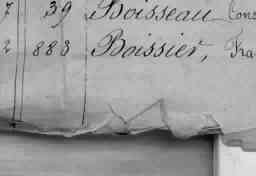 7 39 Boisseau, Cons
2 883 Boissier, Fra